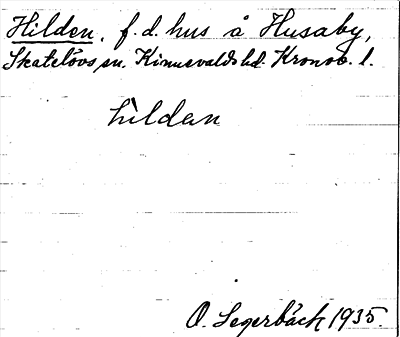 Hilden, f.d. hus å Husaby,
Skatelövs sn. Kinnevaldshd. Kronob. l.
hìldan
O. Segerbäck 1935.